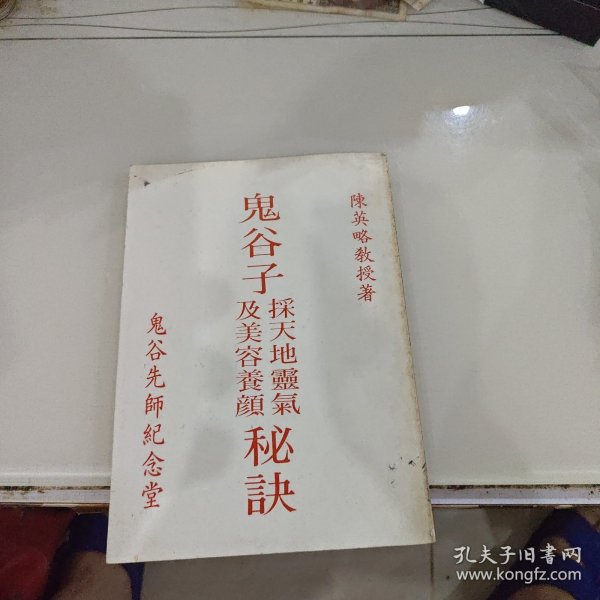 陳英略教授著
鬼谷子採天地靈氣及美容養顏秘訣
鬼谷先師紀念堂
孔夫子旧书网
www.kongfz.com